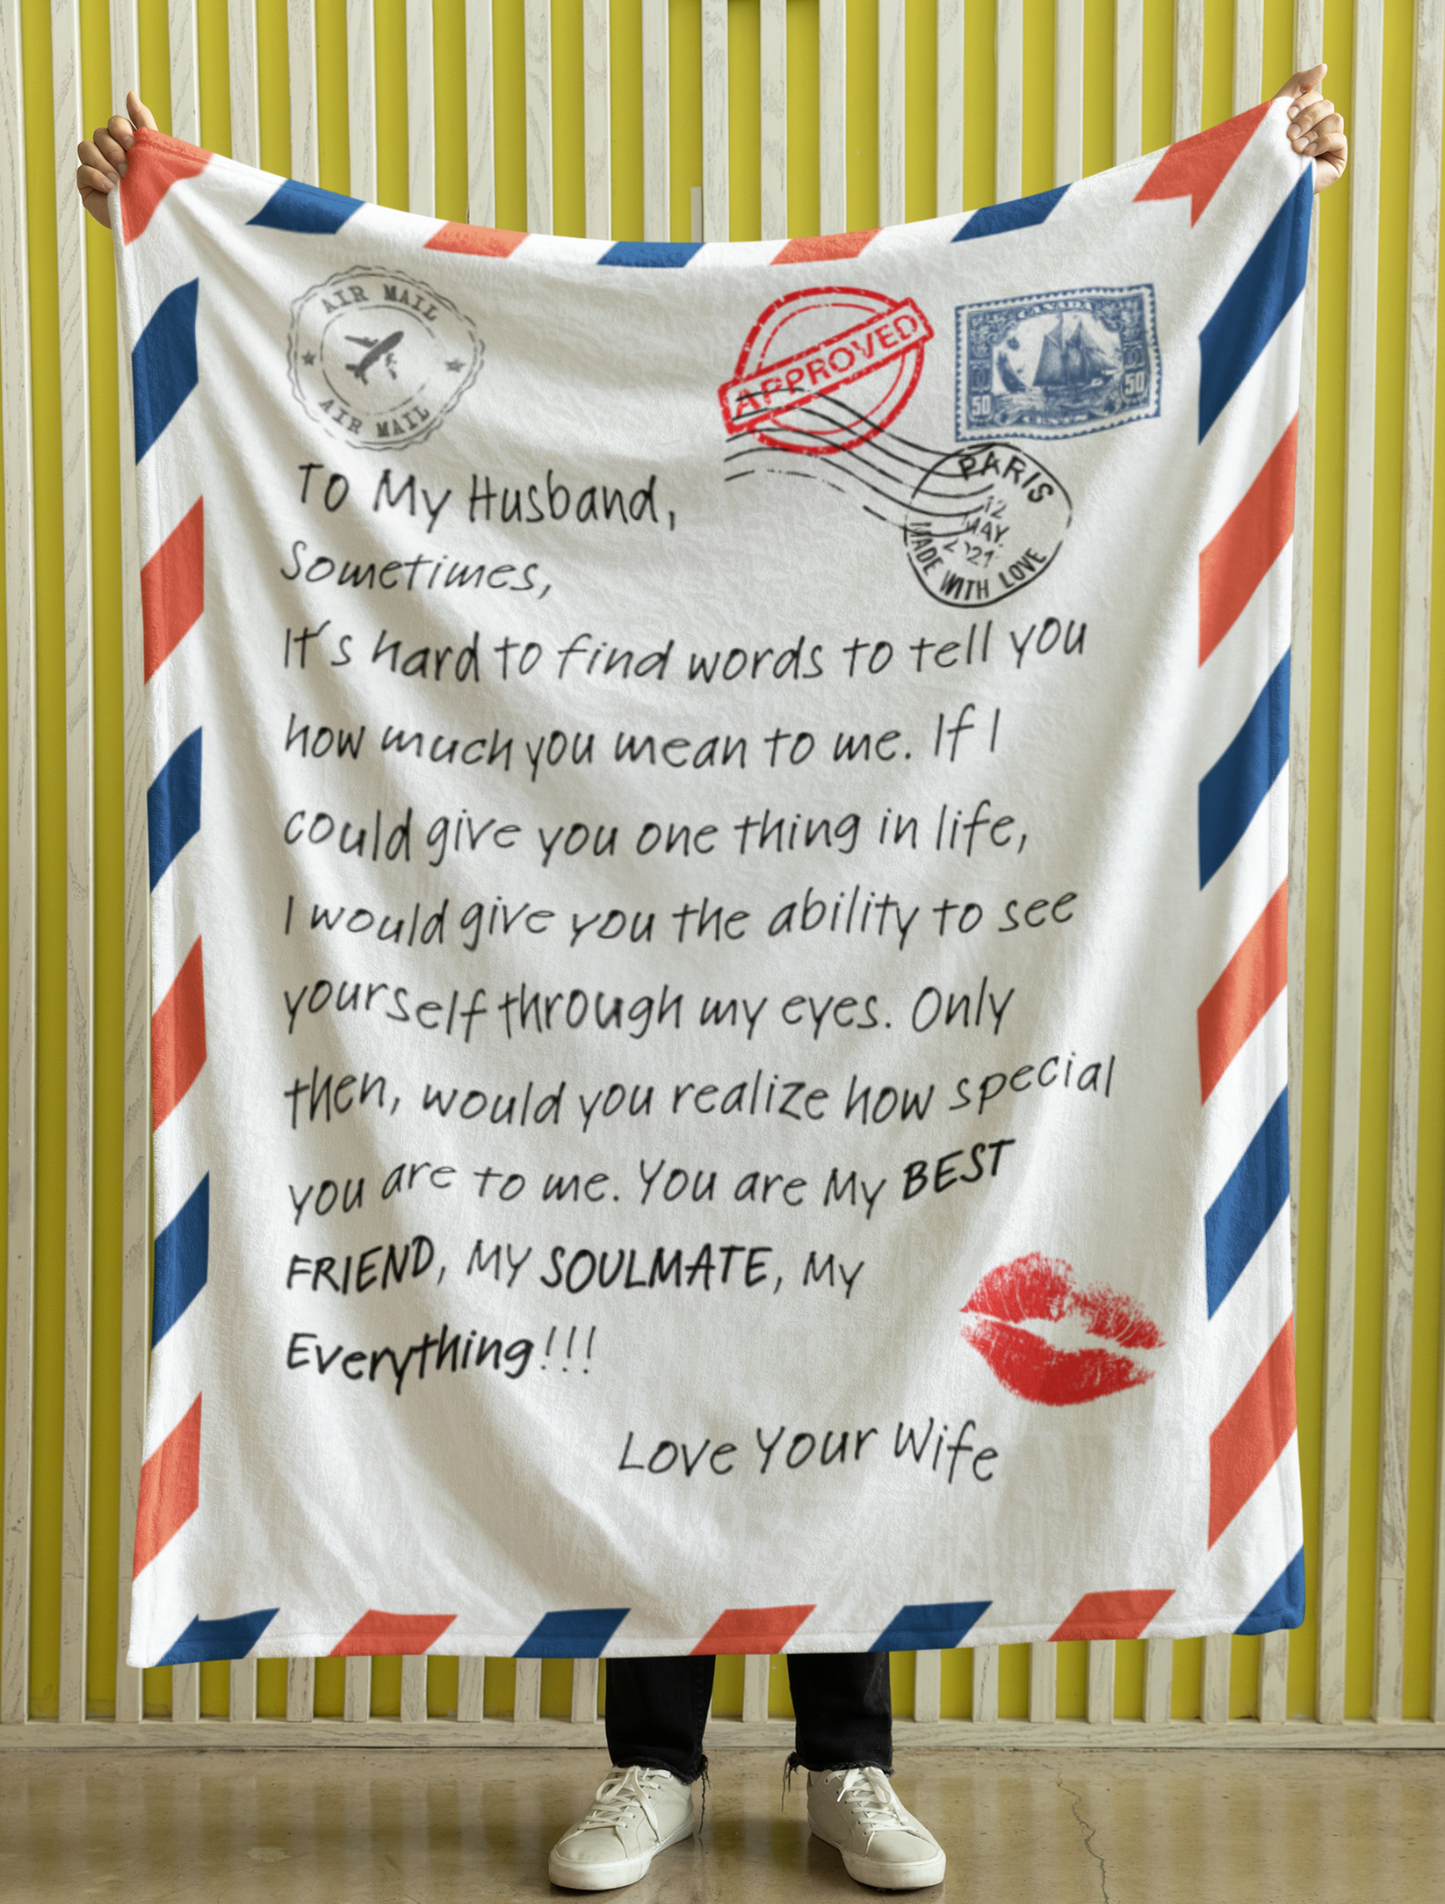 AIR MAIL
AIR MAIL
APPROVED
CANADA
50 50
PARIS
12
MAY.
MADE WITH LOVE
To My Husband,
Sometimes,
It's hard to find words to tell you
how much you mean to me. If I
could give you one thing in life,
I would give you the ability to see
yourself through my eyes. Only
then, would you realize how special
you are to me. You are My BEST
FRIEND, MY SOULMATE, My
Everything!!!
Love Your Wife